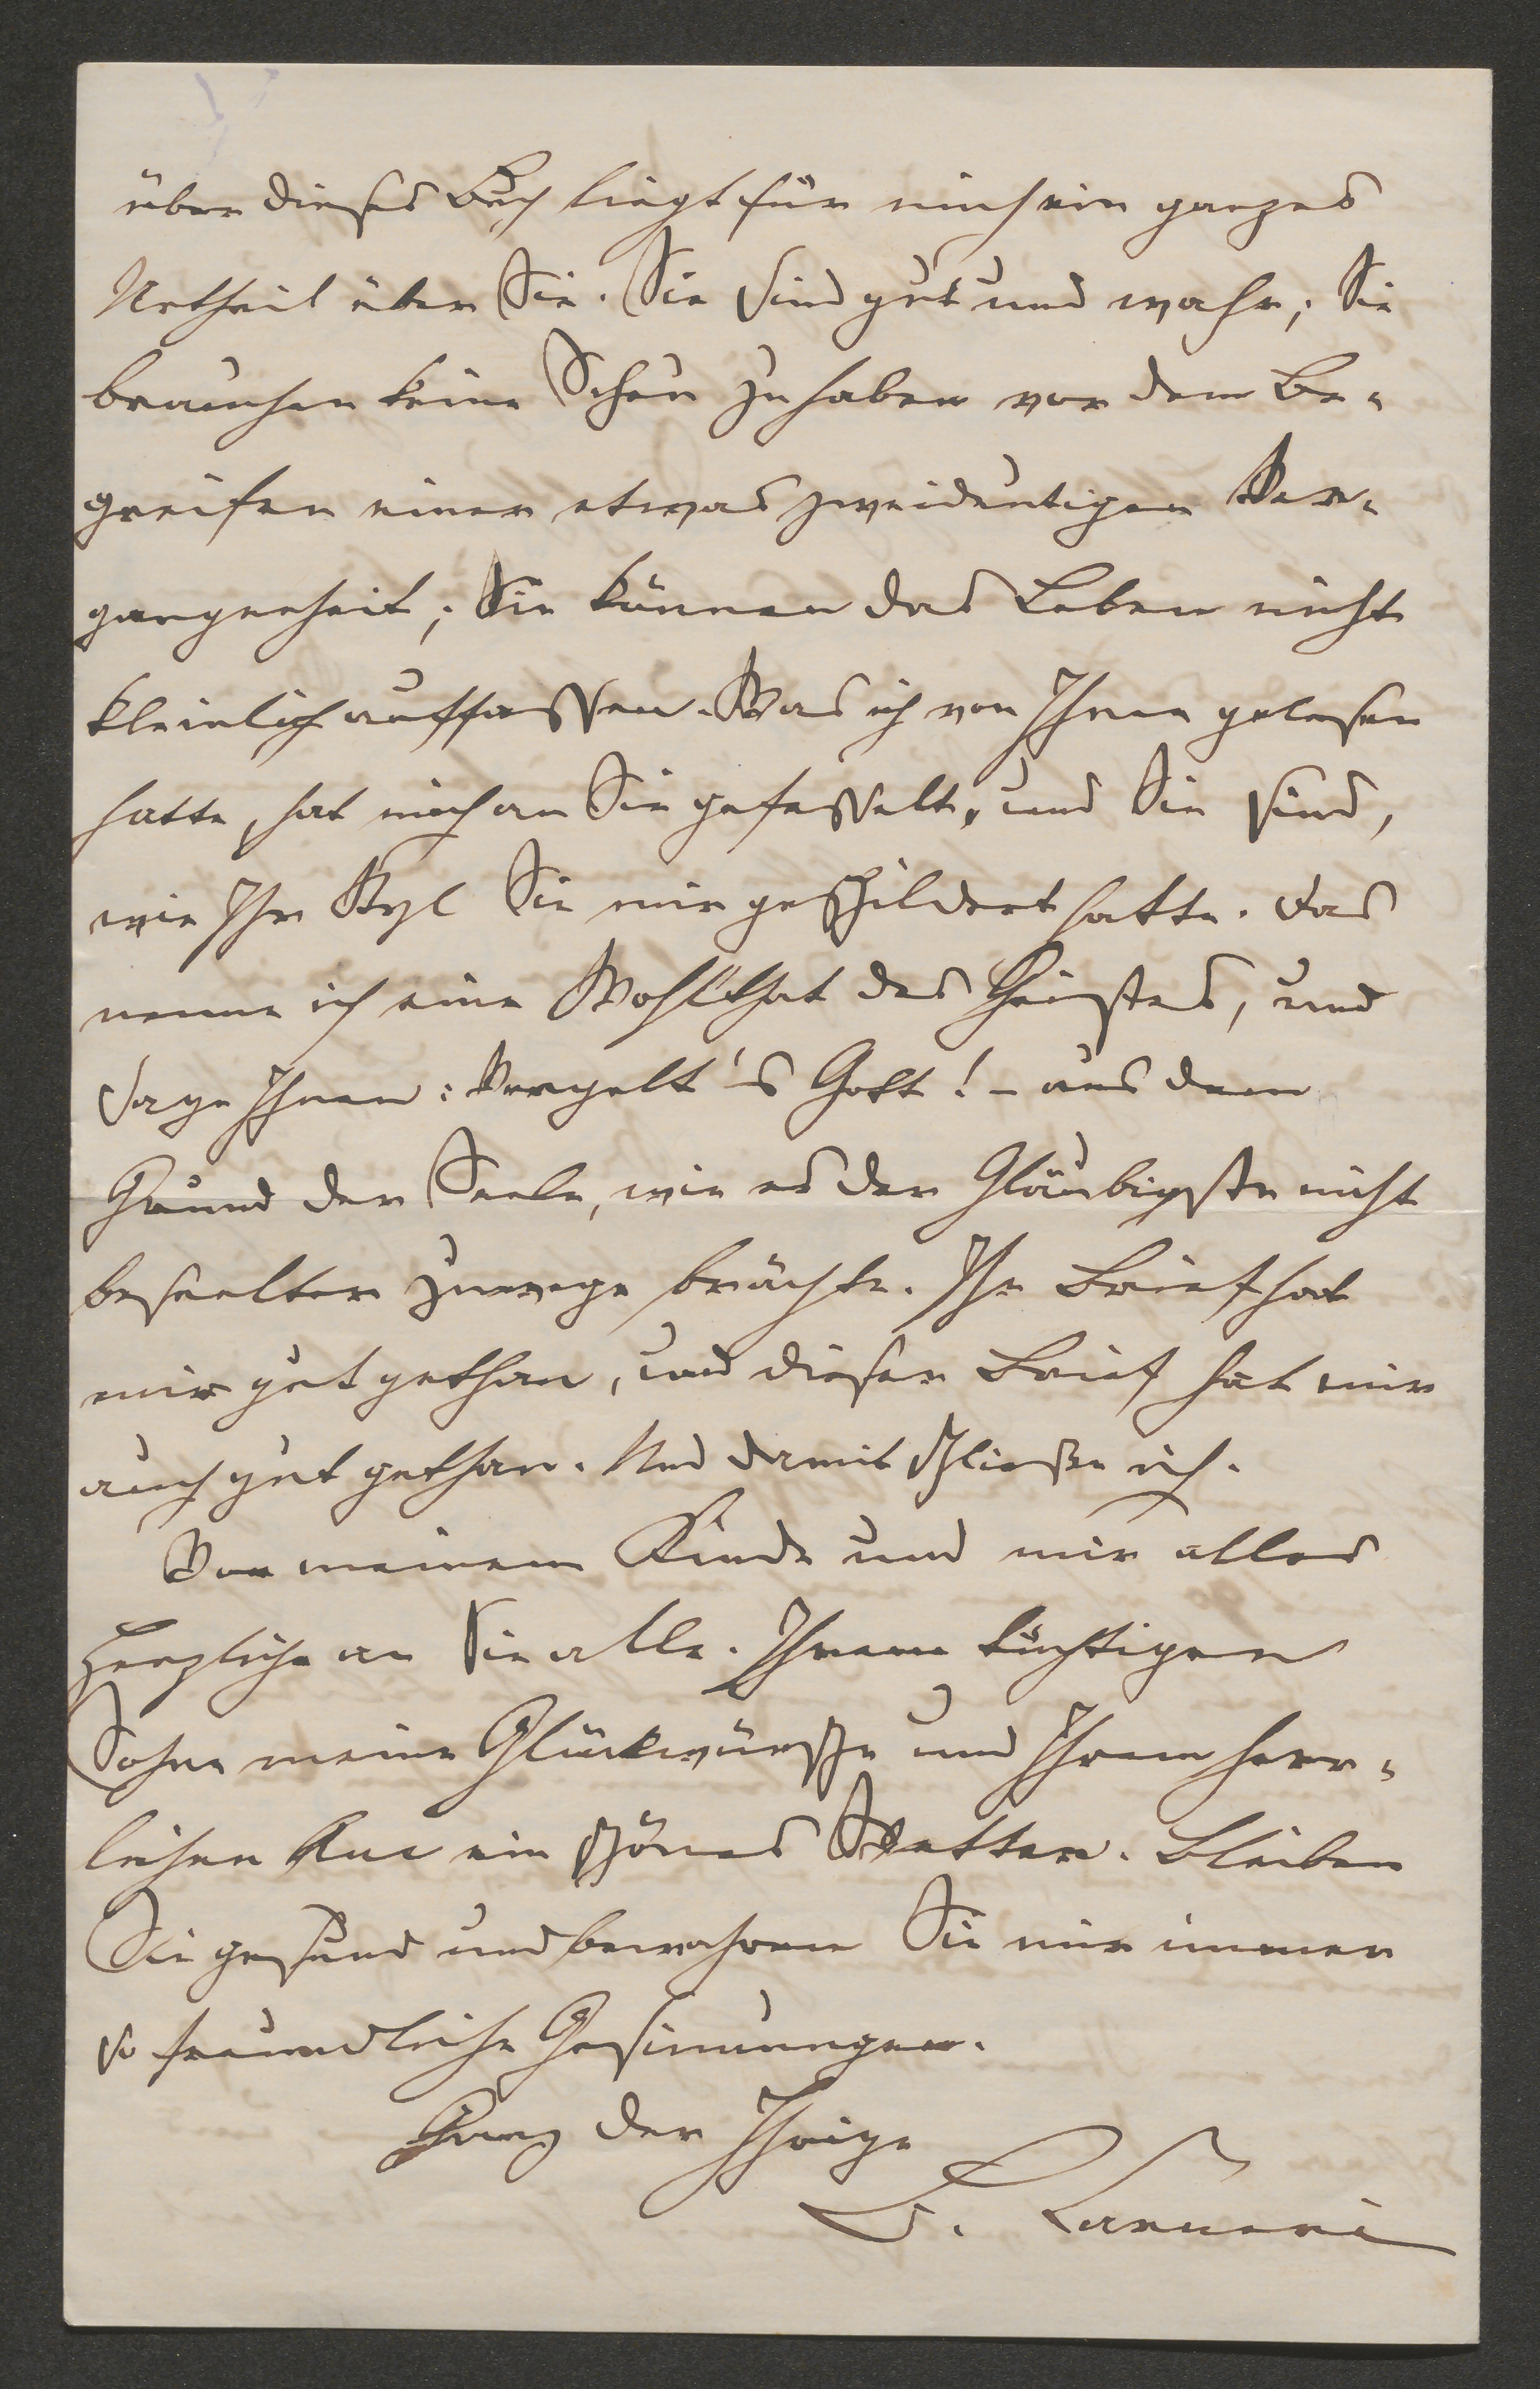 über dieses Buch liegt für mich ein ganzes
Urtheil über Sie. Sie sind gut und wahr; Sie
brauchen keine Scheu zu haben vor dem Be-
greifen einer etwas zweideutigen Ver-
gangenheit; Sie können das Leben nicht
kleinlich auffassen. Was ich von Ihnen gelesen
hatte, hat mich an Sie gefesselt, und Sie sind,
wie Ihr Styl Sie mir geschildert hatte. Das
nenne ich eine Wohlthat des Geistes, und
sage Ihnen: Vergelt's Gott! – aus dem
Grund der Seele, wie es der Gläubigste nicht
beseelter zuwege brächte. Ihr Brief hat
mir gut gethan, und dieser Brief hat mir
auch gut gethan. Und damit schließe ich.
Von meinem Kinde und mir alles
Herzliche an Sie alle. Ihrem tüchtigen
Sohne meine Glückwünsche und Ihrem herr-
lichen ein schönes Wetter. Bleiben
Sie gesund und bewahren Sie mir immer
so freundliche Gesinnungen.
Ganz der Ihrige
B. Carneri